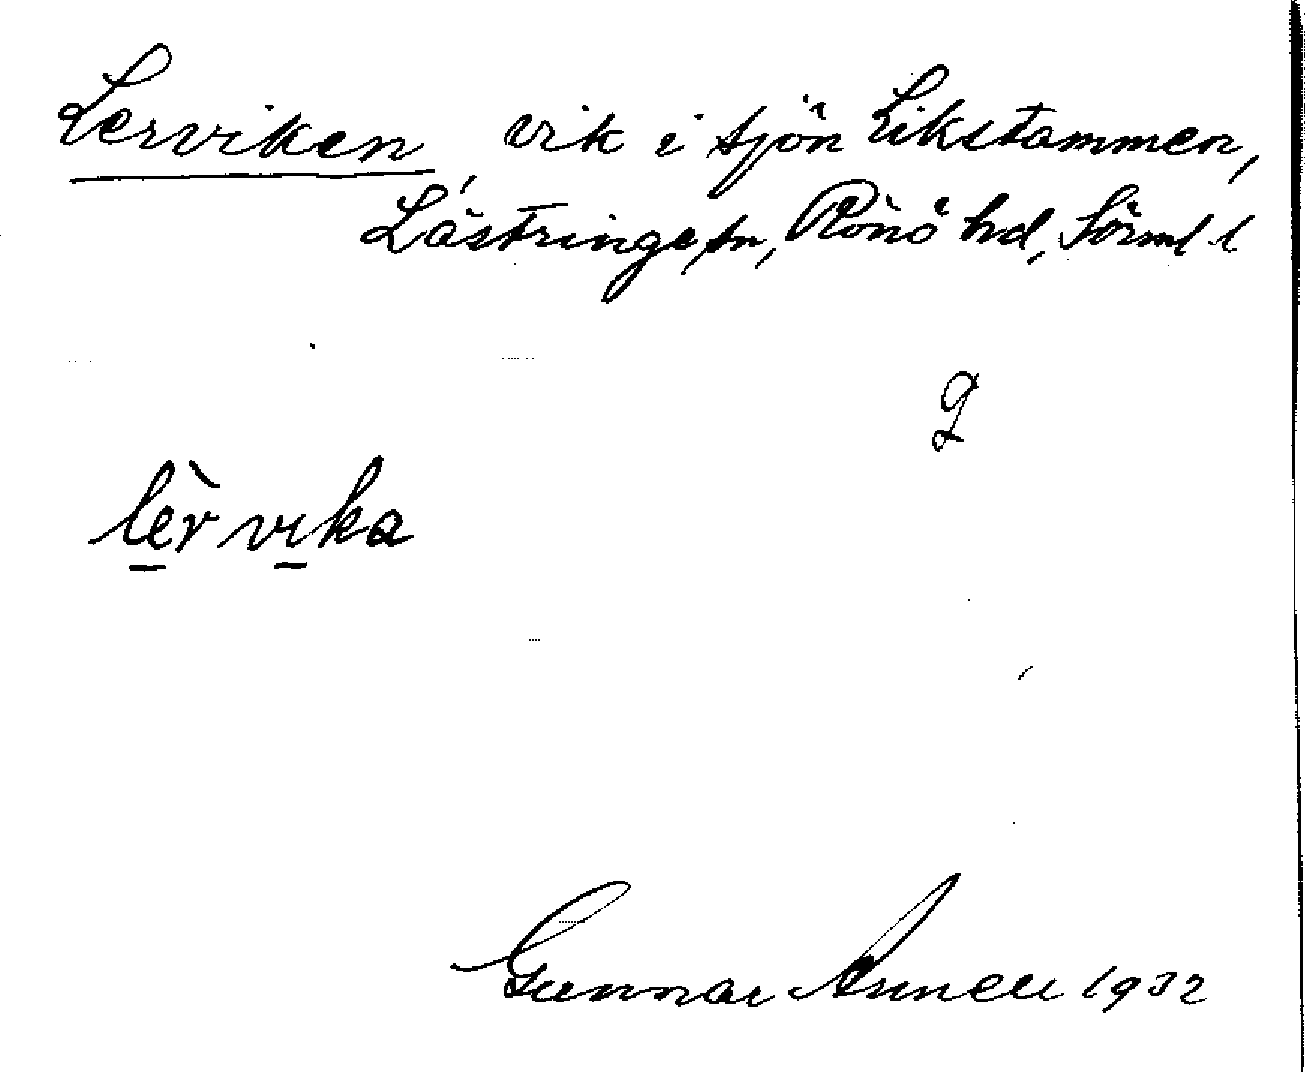 Lerviken, vik i sjön Likstammen,
Lästringe sn, Rönö hd, Sörml l
g
lèrvika
Gunnar Annell 1932